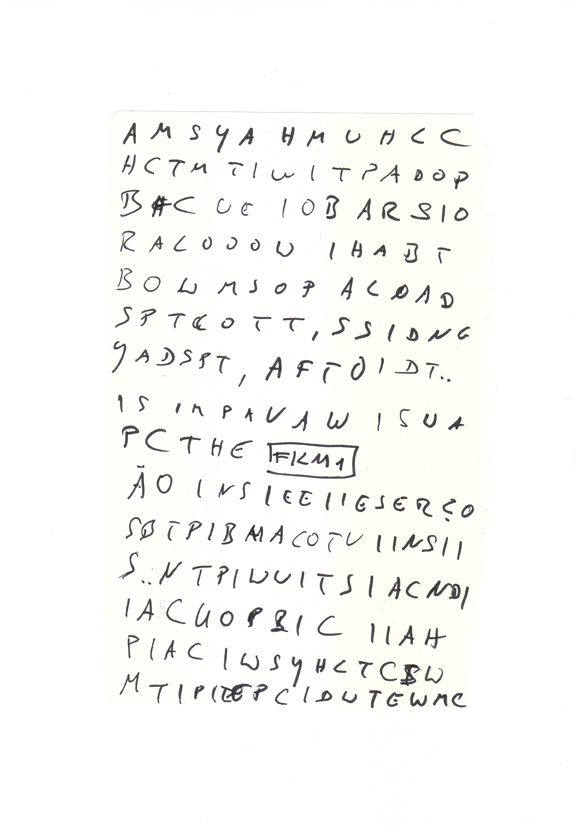 AMSYAHMUHCC
HCTM TIWITPADOP
BHC UE IOBARSIO
RALOOOW IHABT
BOWMSOP ALOAD
SPTCOTT, SSIDNG
YADSPT, AFTOIDT..
IS IMPAVAW ISUA
PCTHE FKM1
ÃO INSIEEIIESERÇO
SBTPIBMACOTU IINSII
S..NTPIWUITSIACNDI
IACUOPBIC IIAH
PIAC IWSYHCTCBW
MTIPIEEPCIDWTEWMC